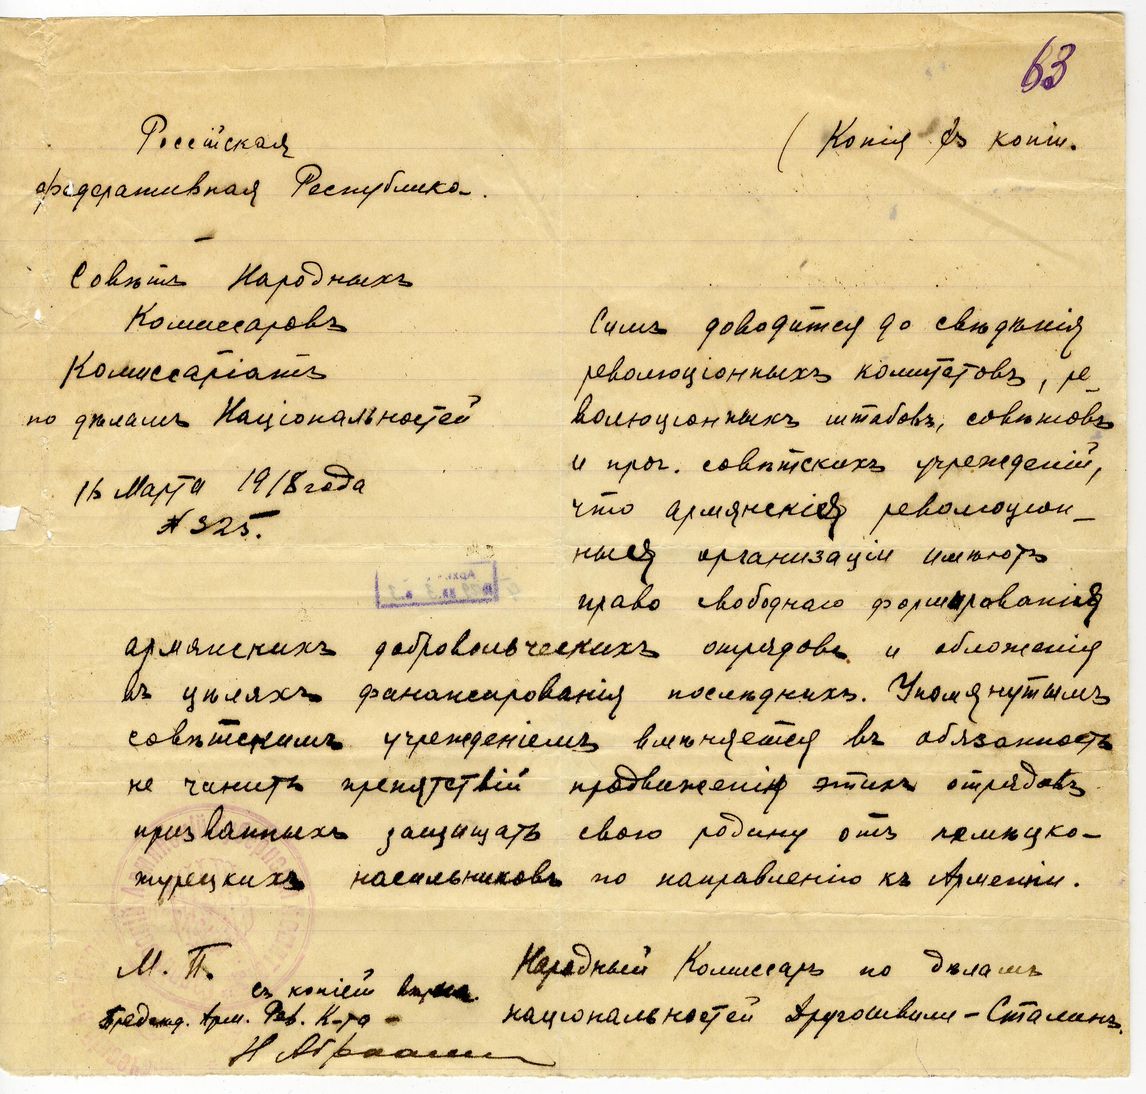 63
(Копія съ копіи.
Россійская
федеративная Республика.
Совѣтъ Народныхъ
Комиссаровъ
Комиссаріатъ
по дѣламъ Національностей
16 Марта 1918 года
№ 325.
Симъ доводится до свѣдѣнія
революціонныхъ комитетовъ, ре-
волюціонныхъ штабовъ, совѣтовъ
и проч. совѣтскихъ учрежденій,
что армянскія революціон-
ныя организаціи имѣютъ
право свободнаго формированія
армянскихъ добровольческихъ отрядовъ и обложенія
въ цѣляхъ финансированія послѣднихъ. Упомянутымъ
совѣтскимъ учрежденіемъ вмѣняется въ обязанность
не чинить препятствій продвиженію этихъ отрядовъ
призванныхъ защищать свою родину отъ немецко-
турецкихъ насильниковъ по направленію къ Арменіи.
М. П.
съ копіей вѣрна.
Предсѣд. Арм. Рев. К-та -
Народный Комиссаръ по дѣламъ
національностей Джугошвили-Сталинъ.